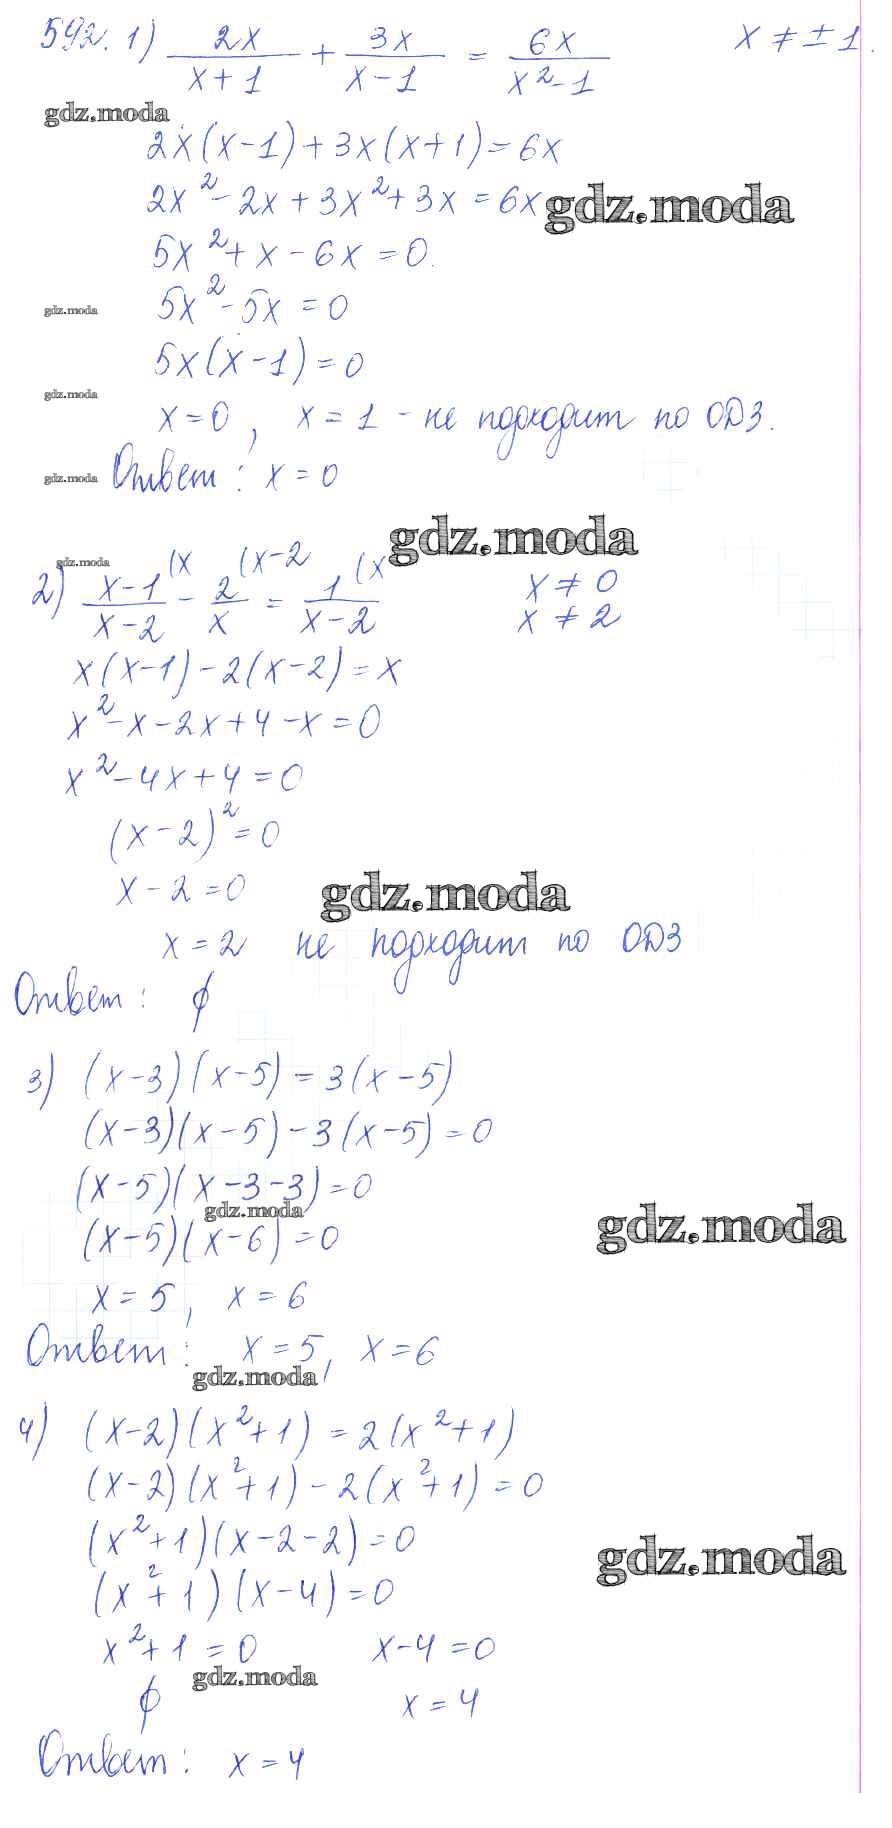 592. 1) 2x/(x+1) + 3x/(x-1) = 6x/(x²-1) x ≠ ± 1.
gdz.moda
2x(x-1)+3x(x+1)=6x
2x²-2x+3x²+3x=6x gdz.moda
5x²+x-6x=0.
gdz.moda 5x²-5x=0
5x(x-1)=0
gdz.moda
x=0, x=1 - не подходит по ОДЗ.
gdz.moda Ответ: x=0
gdz.moda
gdz.moda
2) (x-1)/(x-2) (x - 2/x (x-2 = 1/(x-2) (x x ≠ 0
x ≠ 2
x(x-1)-2(x-2)=x
x²-x-2x+4-x=0
x²-4x+4=0
(x-2)²=0
x-2=0 gdz.moda
x=2 не подходит по ОДЗ
Ответ: ∅
3) (x-3)(x-5)=3(x-5)
(x-3)(x-5)-3(x-5)=0
(x-5)(x-3-3)=0
gdz.moda
(x-5)(x-6)=0 gdz.moda
x=5, x=6
Ответ: x=5, x=6
gdz.moda
4) (x-2)(x²+1)=2(x²+1)
(x-2)(x²+1)-2(x²+1)=0
(x²+1)(x-2-2)=0 gdz.moda
(x²+1)(x-4)=0
x²+1=0 x-4=0
gdz.moda
∅ x=4
Ответ: x=4